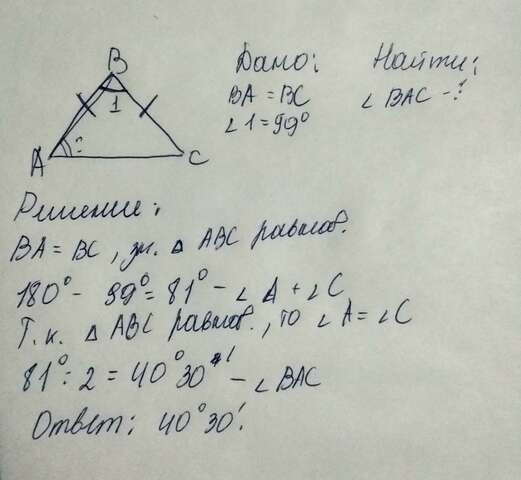 B
1
A
?
C
Дано:
BA = BC
∠1 = 99°
Найти:
∠BAC - ?
Решение:
BA = BC, зн. △ ABC равноб.
180° - 99° = 81° - ∠A + ∠C
Т.к. △ ABC равноб., то ∠A = ∠C
81° : 2 = 40°30' - ∠BAC
Ответ: 40°30'.